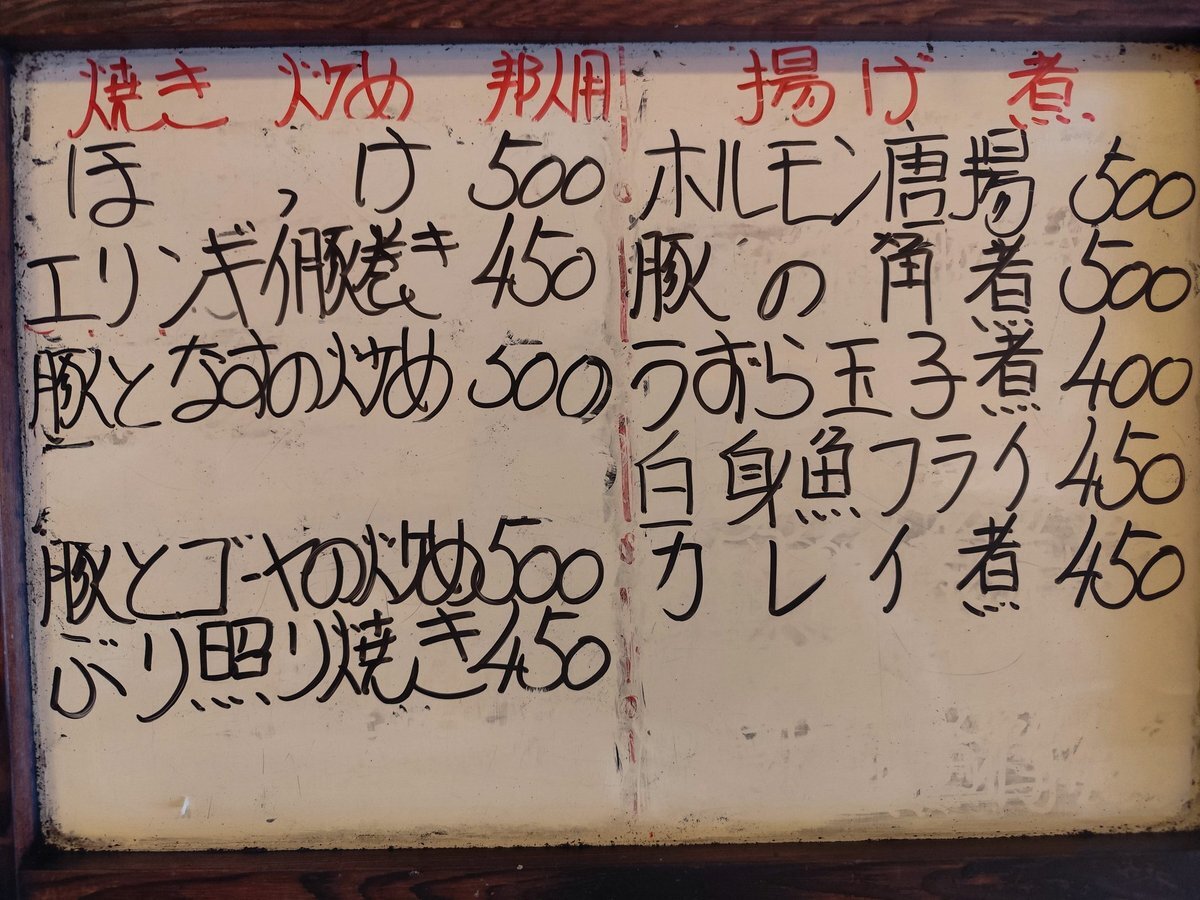 焼き 炒め 邦人用
ほっけ 500
エリンギ豚巻き 450
豚となすの炒め 500
豚とゴーヤの炒め 500
ぶり照り焼き 450
揚げ 煮
ホルモン唐揚 500
豚の角煮 500
うずら玉子煮 400
白身魚フライ 450
カレイ煮 450